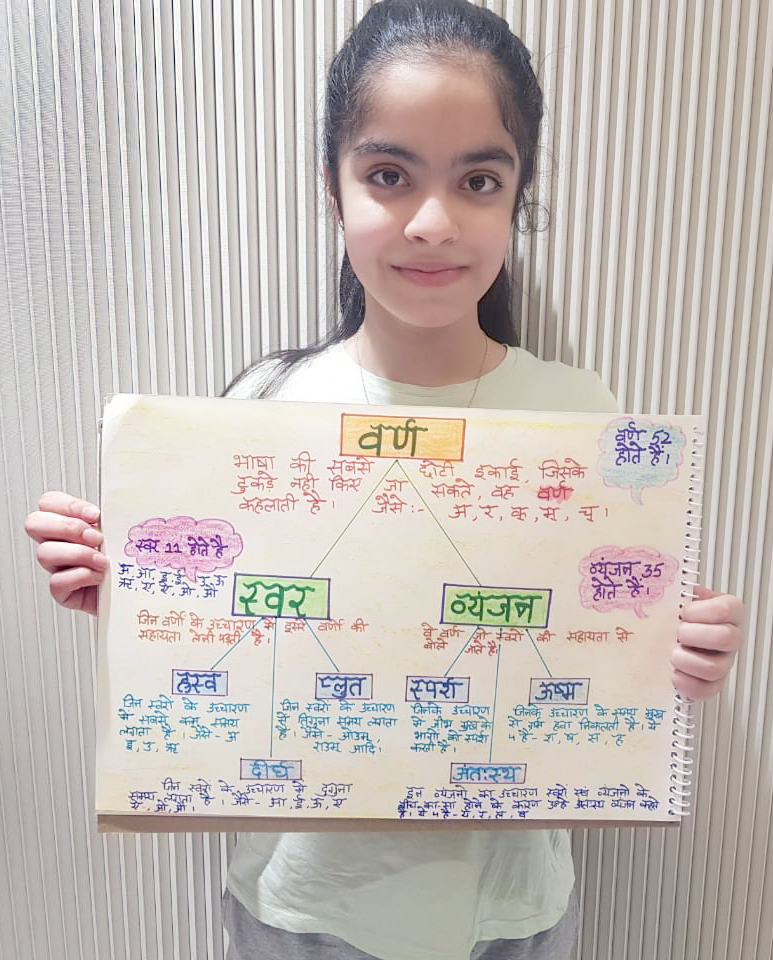 वर्ण
वर्ण 52
होते हैं।
भाषा की सबसे छोटी इकाई, जिसके
टुकड़े नही किए जा सकते, वह वर्ण
कहलाती है। जैसे:- अ, र, क्, म्, च्।
स्वर 11 होते है
अ, आ, इ, ई, उ, ऊ
ऋ, ए, ऐ, ओ, औ
व्यंजन 35
होते हैं।
स्वर
जिन वर्णो के उच्चारण में दूसरे वर्णो की
सहायता लेनी पड़ती है।
व्यंजन
वे वर्ण जो स्वरों की सहायता से
बोले जाते है।
ह्रस्व
जिन स्वरो के उच्चारण
में सबसे कम समय
लगता है। जैसे- अ
इ, उ, ऋ
प्लुत
जिन स्वरो के उच्चारण
में तिगुना समय लगता
है। जैसे- ओउम्
राउम् आदि।
स्पर्श
जिनके उच्चारण
में जीभ मुख के
भागों को स्पर्श
करती है।
ऊष्म
जिनके उच्चारण के समय मुख
से गर्म हवा निकलती है। ये
4 है- श, ष, स, ह
दीर्घ
जिन स्वरो के उच्चारण में दुगुना
समय लगता है- जैसे- आ, ई, ऊ, ए
ऐ, ओ, औ।
अंतःस्थ
इन व्यंजनो का उच्चारण स्वरो एवं व्यंजनो के
बीच का-सा होने के कारण इन्हे अंतःस्थ व्यंजन कहते
है। ये 4 है- य, र, ल, व